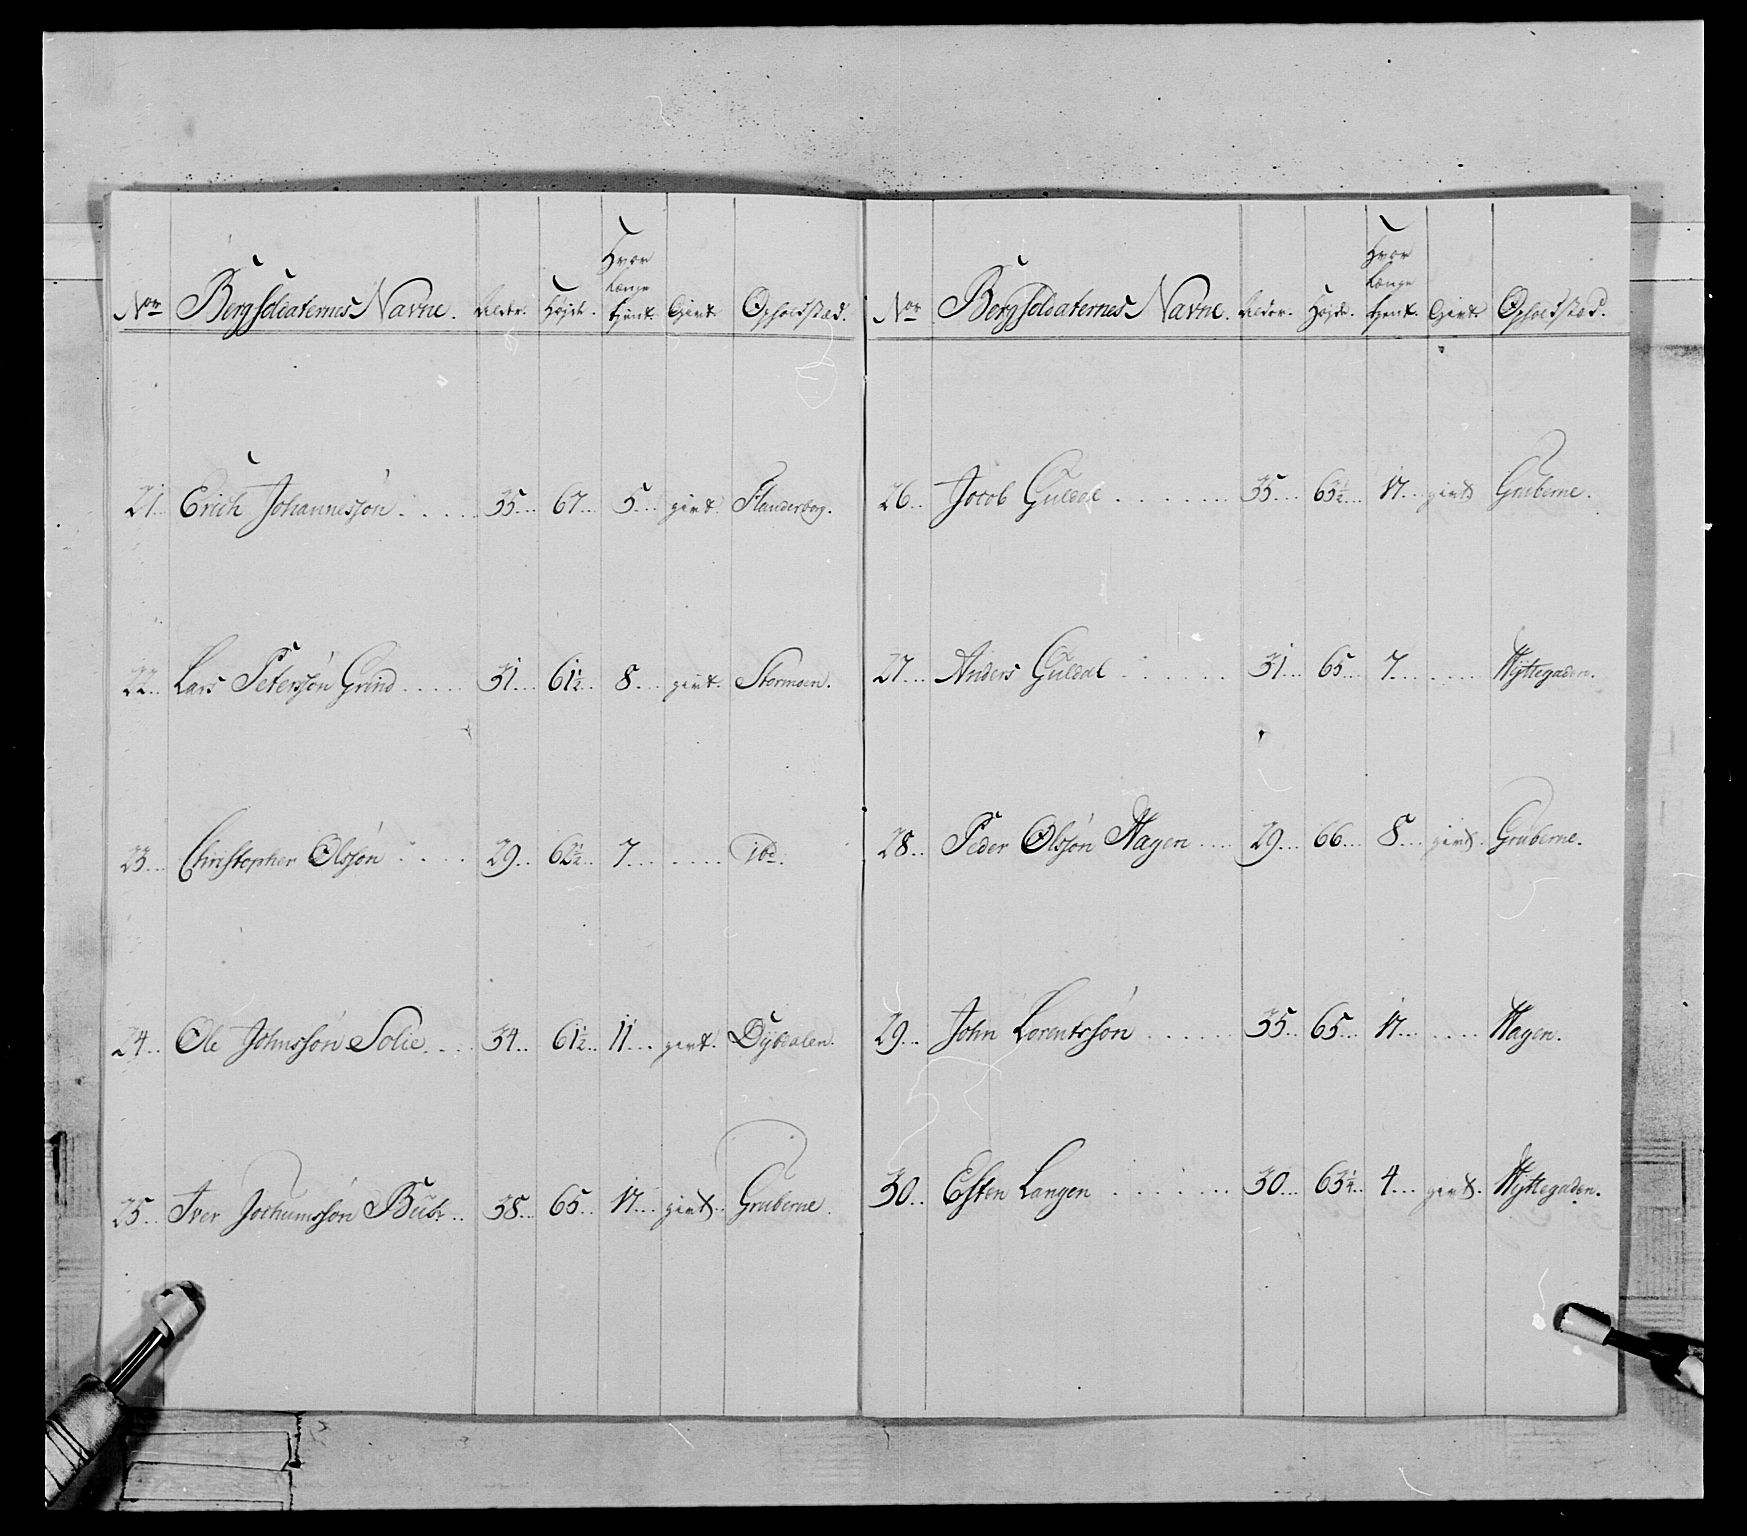 Nor Bergsoldaternes Navne. Alder. Højde. Hvor Længe tjent. Givt. Opholdstæd.
21... Erich Johannessøn..... 35... 67... 5... givt. Flanderborg.
22... Lars Peterssøn Grind..... 31... 61½.. 8... givt. Stormoen.
23... Christopher Olssøn..... 29... 62½.. 7... ..... Ibd.
24... Ole Johnssøn Solie.... 34... 61½.. 11... givt. Dybdalen.
25... Iver Jochumssøn Bub.. 38... 65... 17... givt. Gruberne.
Nor Bergsoldaternes Navne. Alder. Højde. Hvor Længe tjent. Givt. Opholdstæd.
26... Jocob Guldal....... 35... 63½.. 17... givt Gruberne.
27... Anders Guldal....... 31... 65... 7... .... Hyttegaden.
28... Peder Olssøn Hagen.... 29... 66... 8... givt. Gruberne.
29... John Lorentssøn...... 35... 65... 17... .... Hagen.
30... Esten Langen....... 30... 63½.. 4... givt. Hyttegaden.